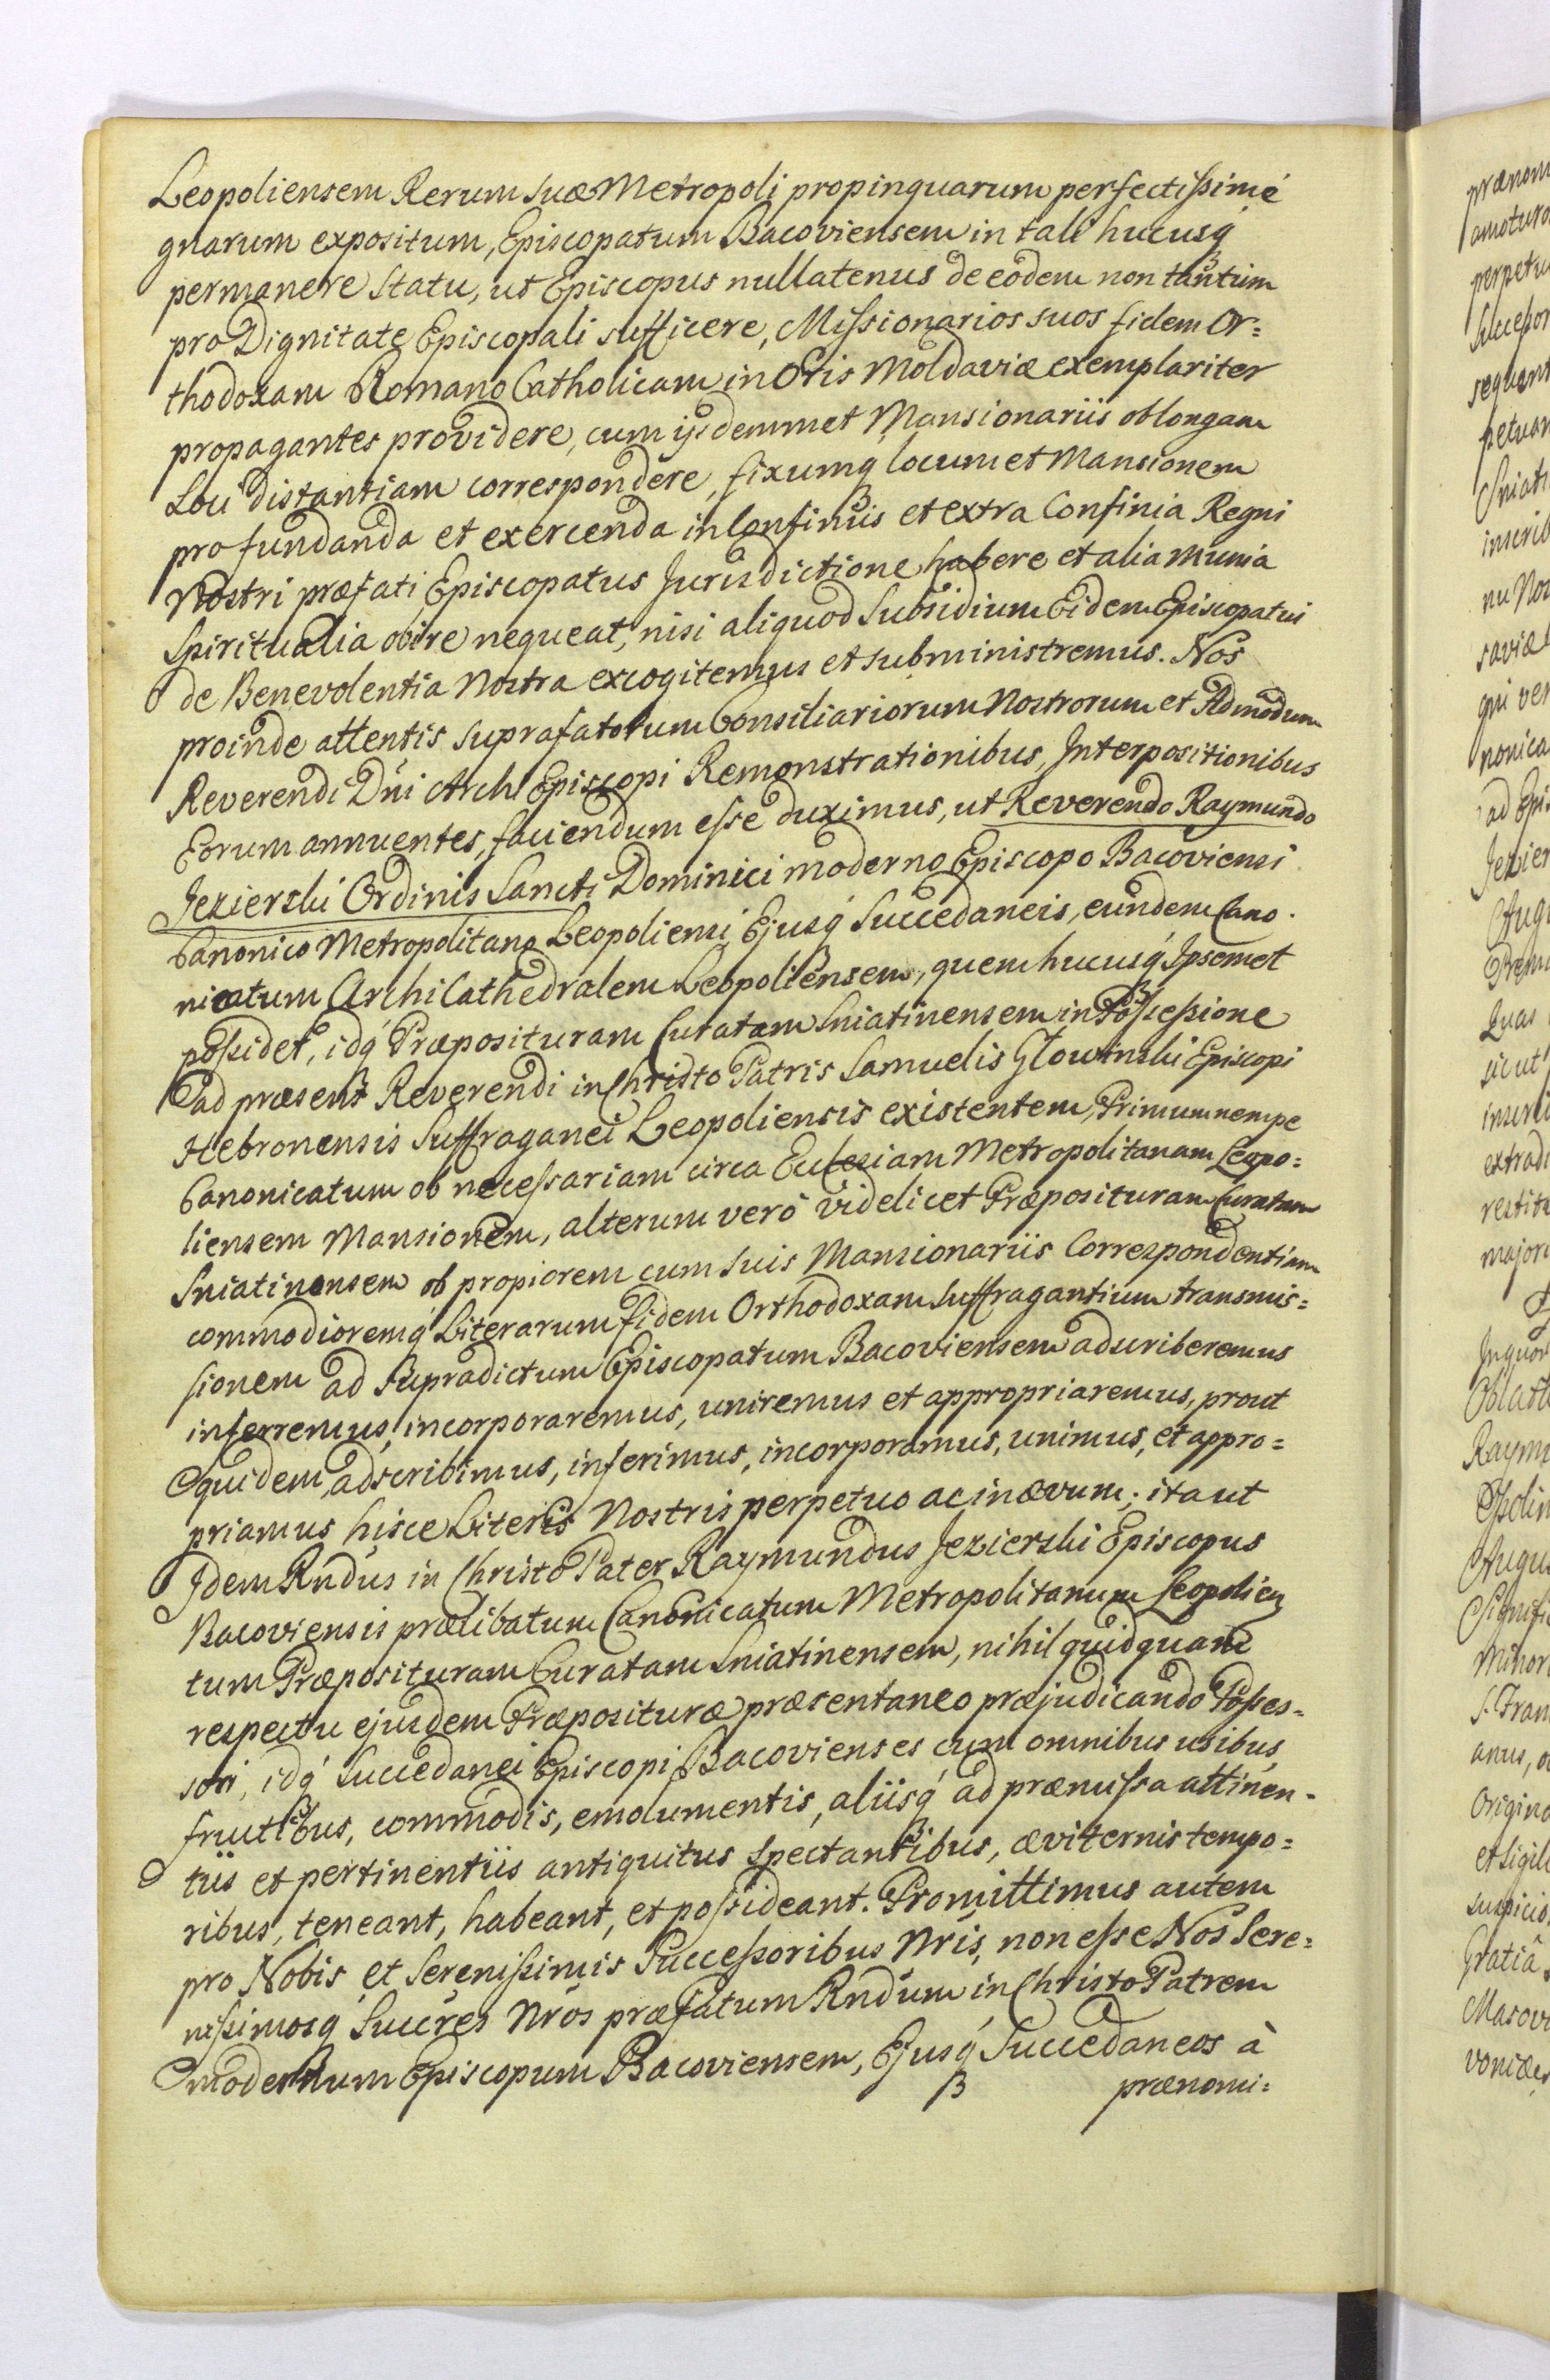 Leopoliensem Rerum suæ Metropoli propinquarum perfectissimé
gnarum expositum, Episcopatum Bacoviensem in tali hucusq́
permanere Statu, ut Episcopus nullatenus de eodem non tantum
pro Dignitate Episcopali sufficere, Missionarios suos fidem Or=
thodoxam Romano Catholicam in Oris Moldaviæ exemplariter
propagantes providere, cum ijsdemmet Mansionariis oblongam
Loci distantiam correspondere, fixumq́ locum et Mansionem
pro fundanda et exercenda in Confiniis et extra Confinia Regni
Nostri præfati Episcopatus Jurisdictione habere et alia munia
Spiritualia obire nequeat, nisi aliquod Subsidium Eidem Episcopatui
de Benevolentia Nostra excogitemus et subministremus. Nos
proinde attentis suprafatorum Consiliariorum Nostrorum et Admodum
Reverendi Dńi Archi Episcopi Remonstrationibus, Interpositionibus
Eorum annuentes, faciendum esse duximus, ut Reverendo Raymundo
Jezierski Ordinis Sancti Dominici moderno Episcopo Bacoviensi
Canonico Metropolitano Leopoliensi Ejusq́ Succedaneis, eundem Cano.
nicatum Archi Cathedralem Leopoliensem, quem hucusq́ Ipsemet
possidet, idq́ Præposituram Curatam Sniatinensem in Possessione
ad præsens Reverendi in Christo Patris Samuelis Glowinski Episcopi
Hebronensis Suffraganei Leopoliensis existentem, Primum nempe
Canonicatum ob necessariam circa Ecclesiam Metropolitanam Leopo=
liensem Mansionem, alterum veró videlicet Præposituram Curatam
Sniatinensem ob propiorem cum suis Mansionariis Correspondentiam
commodioremq́ Literarum fidem Orthodoxam suffragantium transmis=
sionem ad supradictum Episcopatum Bacoviensem adscriberemus
inferremus, incorporaremus, uniremus et appropriaremus, prout
quidem adscribimus, inferimus, incorporamus, unimus, et appro=
priamus hisce Literis Nostris perpetuo ac in ævum; ita ut
Idem Rńdus in Christo Pater Raymundus Jezierski Episcopus
Bacoviensis prælibatum Canonicatum Metropolitanum Leopolien
tum Præposituram Curatam Sniatinensem, nihil quidquam
respectu ejusdem Præposituræ præsentaneo præjudicando Posses=
sori, idq́ Succedanei Episcopi Bacovienses cum omnibus usibus
fructibus, commodis, emolumentis, aliisq́ ad præmissa attinen-
tiis et pertinentiis antiquitus spectantibus, æviternis tempo=
ribus, teneant, habeant, et possideant. Promittimus autem
pro Nobis et Serenissimis Successoribus Nŕis, non esse Nos Sere=
nissimosq́ Succŕes Nŕos præfatum Rńdum in Christo Patrem
modernum Episcopum Bacoviensem, Ejusq́ Succedaneos à
prænomi=